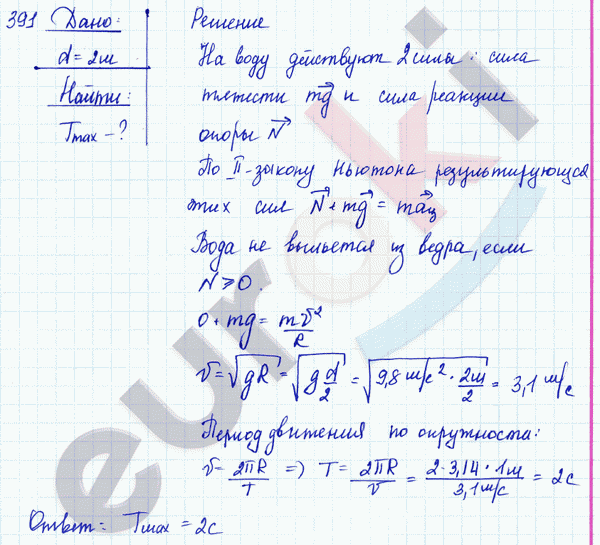 391 Дано:
d = 2м
Найти:
Tmax - ?
Решение
На воду действуют 2 силы: сила
тяжести mg⃗ и сила реакции
опоры N⃗
По II-закону Ньютона результирующая
этих сил N⃗ + mg⃗ = ma⃗ц
Вода не выльется из ведра, если
N ≥ 0.
0 + mg = mv²/R
v = √gR = √(g d/2) = √(9,8 м/с² · 2м/2) = 3,1 м/с
Период движения по окружности:
v = 2πR/T => T = 2πR/v = 2·3,14·1м/3,1 м/с = 2с
Ответ: Tmax = 2с
euroki